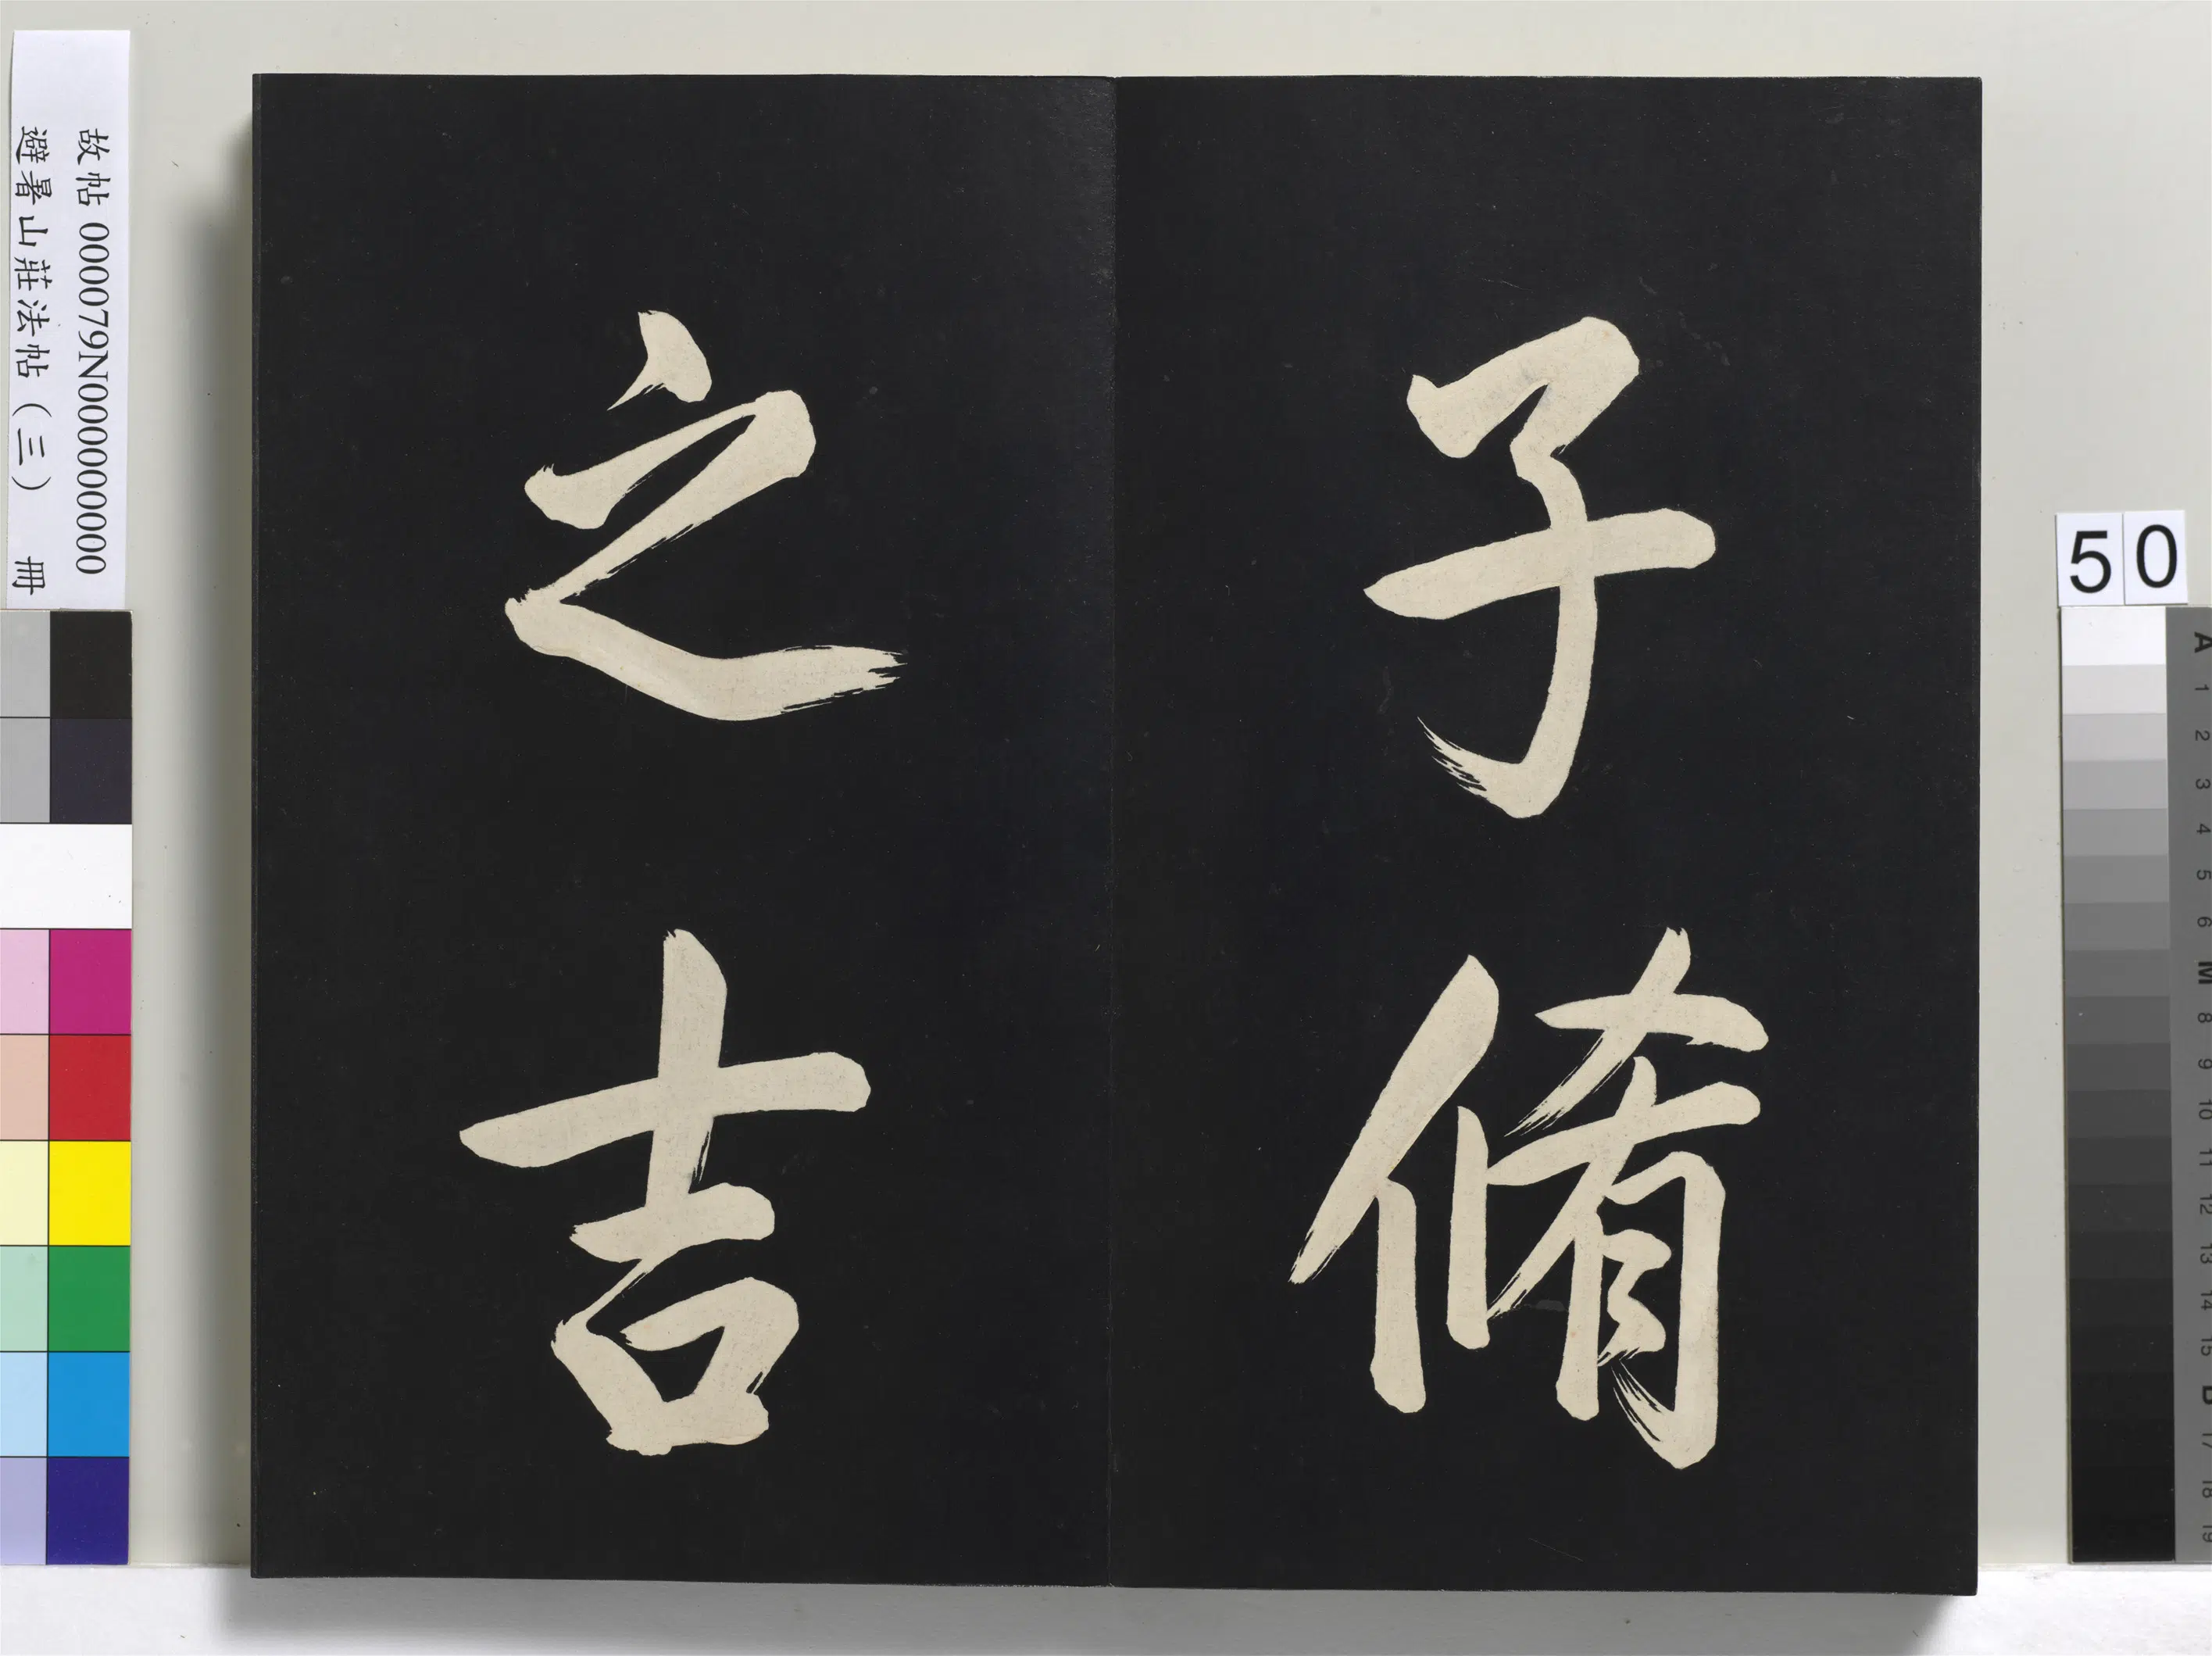 子脩
之吉
故帖 000079N000000000
避暑山莊法帖（三） 冊
50
A
1
2
3
4
5
6
M
8
9
10
11
12
13
14
15
B
17
18
19